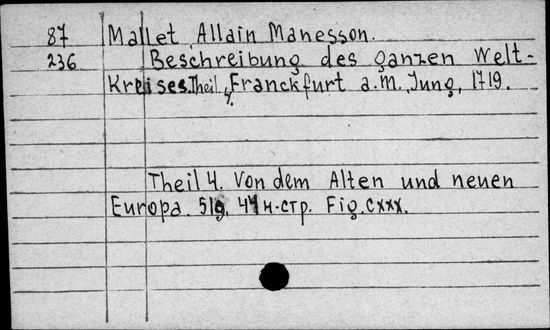 87 Mallet Allain Manesson.
236 Beschreibung des ganzen Welt-
Kreises. Theil 4, Franckfurt a.M., Jung, 1719.
Theil 4. Von dem Alten und neuen
Europa. 519, 44 н.стр. Fig. CXXX.